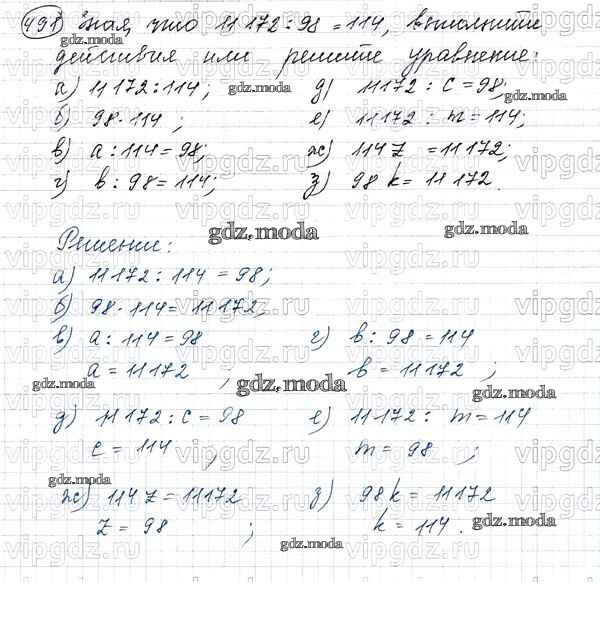 491 Зная, что 11172:98 = 114, выполните
действия или решите уравнение:
а) 11172:114; д) 11172 : c = 98;
б) 98·114 ; е) 11172 : m = 114;
в) a : 114 = 98; ж) 114 z = 11172;
г) b : 98 = 114; з) 98 k = 11172.
Решение:
а) 11172 : 114 = 98;
б) 98·114 = 11172;
в) a : 114 = 98 г) b : 98 = 114
a = 11172 ; b = 11172 ;
д) 11172 : c = 98 е) 11172 : m = 114
c = 114 , m = 98 ,
ж) 114 z = 11172 з) 98 k = 11172
z = 98 ; k = 114 .
gdz.moda
vipgdz.ru